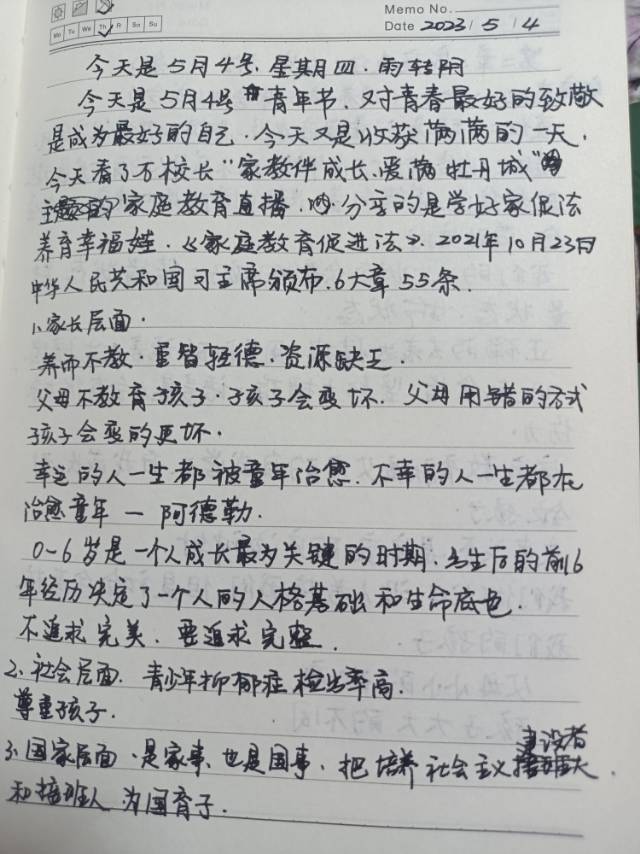 Memo No.
Mo Tu We Th Fr Sa Su
Date 2023 / 5 / 4
今天是5月4号.星期四.雨转阴
今天是5月4号 青年节.又对青春最好的致敬
是成为最好的自己.今天又是收获满满的一天.
今天看了万校长“家教伴成长、爱满牡丹城”
主 的家庭教育直播. 分享的是学好家促法
养育幸福娃.《家庭教育促进法》.2021年10月23日
中华人民共和国习主席颁布.6大章55条.
1、家长层面.
养而不教.重智轻德.资源缺乏.
父母不教育孩子.孩子会变坏.父母用错的方式
孩子会变的更坏.
幸运的人一生都被童年治愈.不幸的人一生都在
治愈童年 — 阿德勒.
0-6岁是一个人成长最为关键的时期.出生后的前6
年经历决定了一个人的人格基础和生命底色.
不追求完美.要追求完整.
2、社会层面.青少年抑郁症检出率高.
尊重孩子.
3、国家层面.是家事、也是国事、把培养社会主义建设者
和接班人 为国育子.